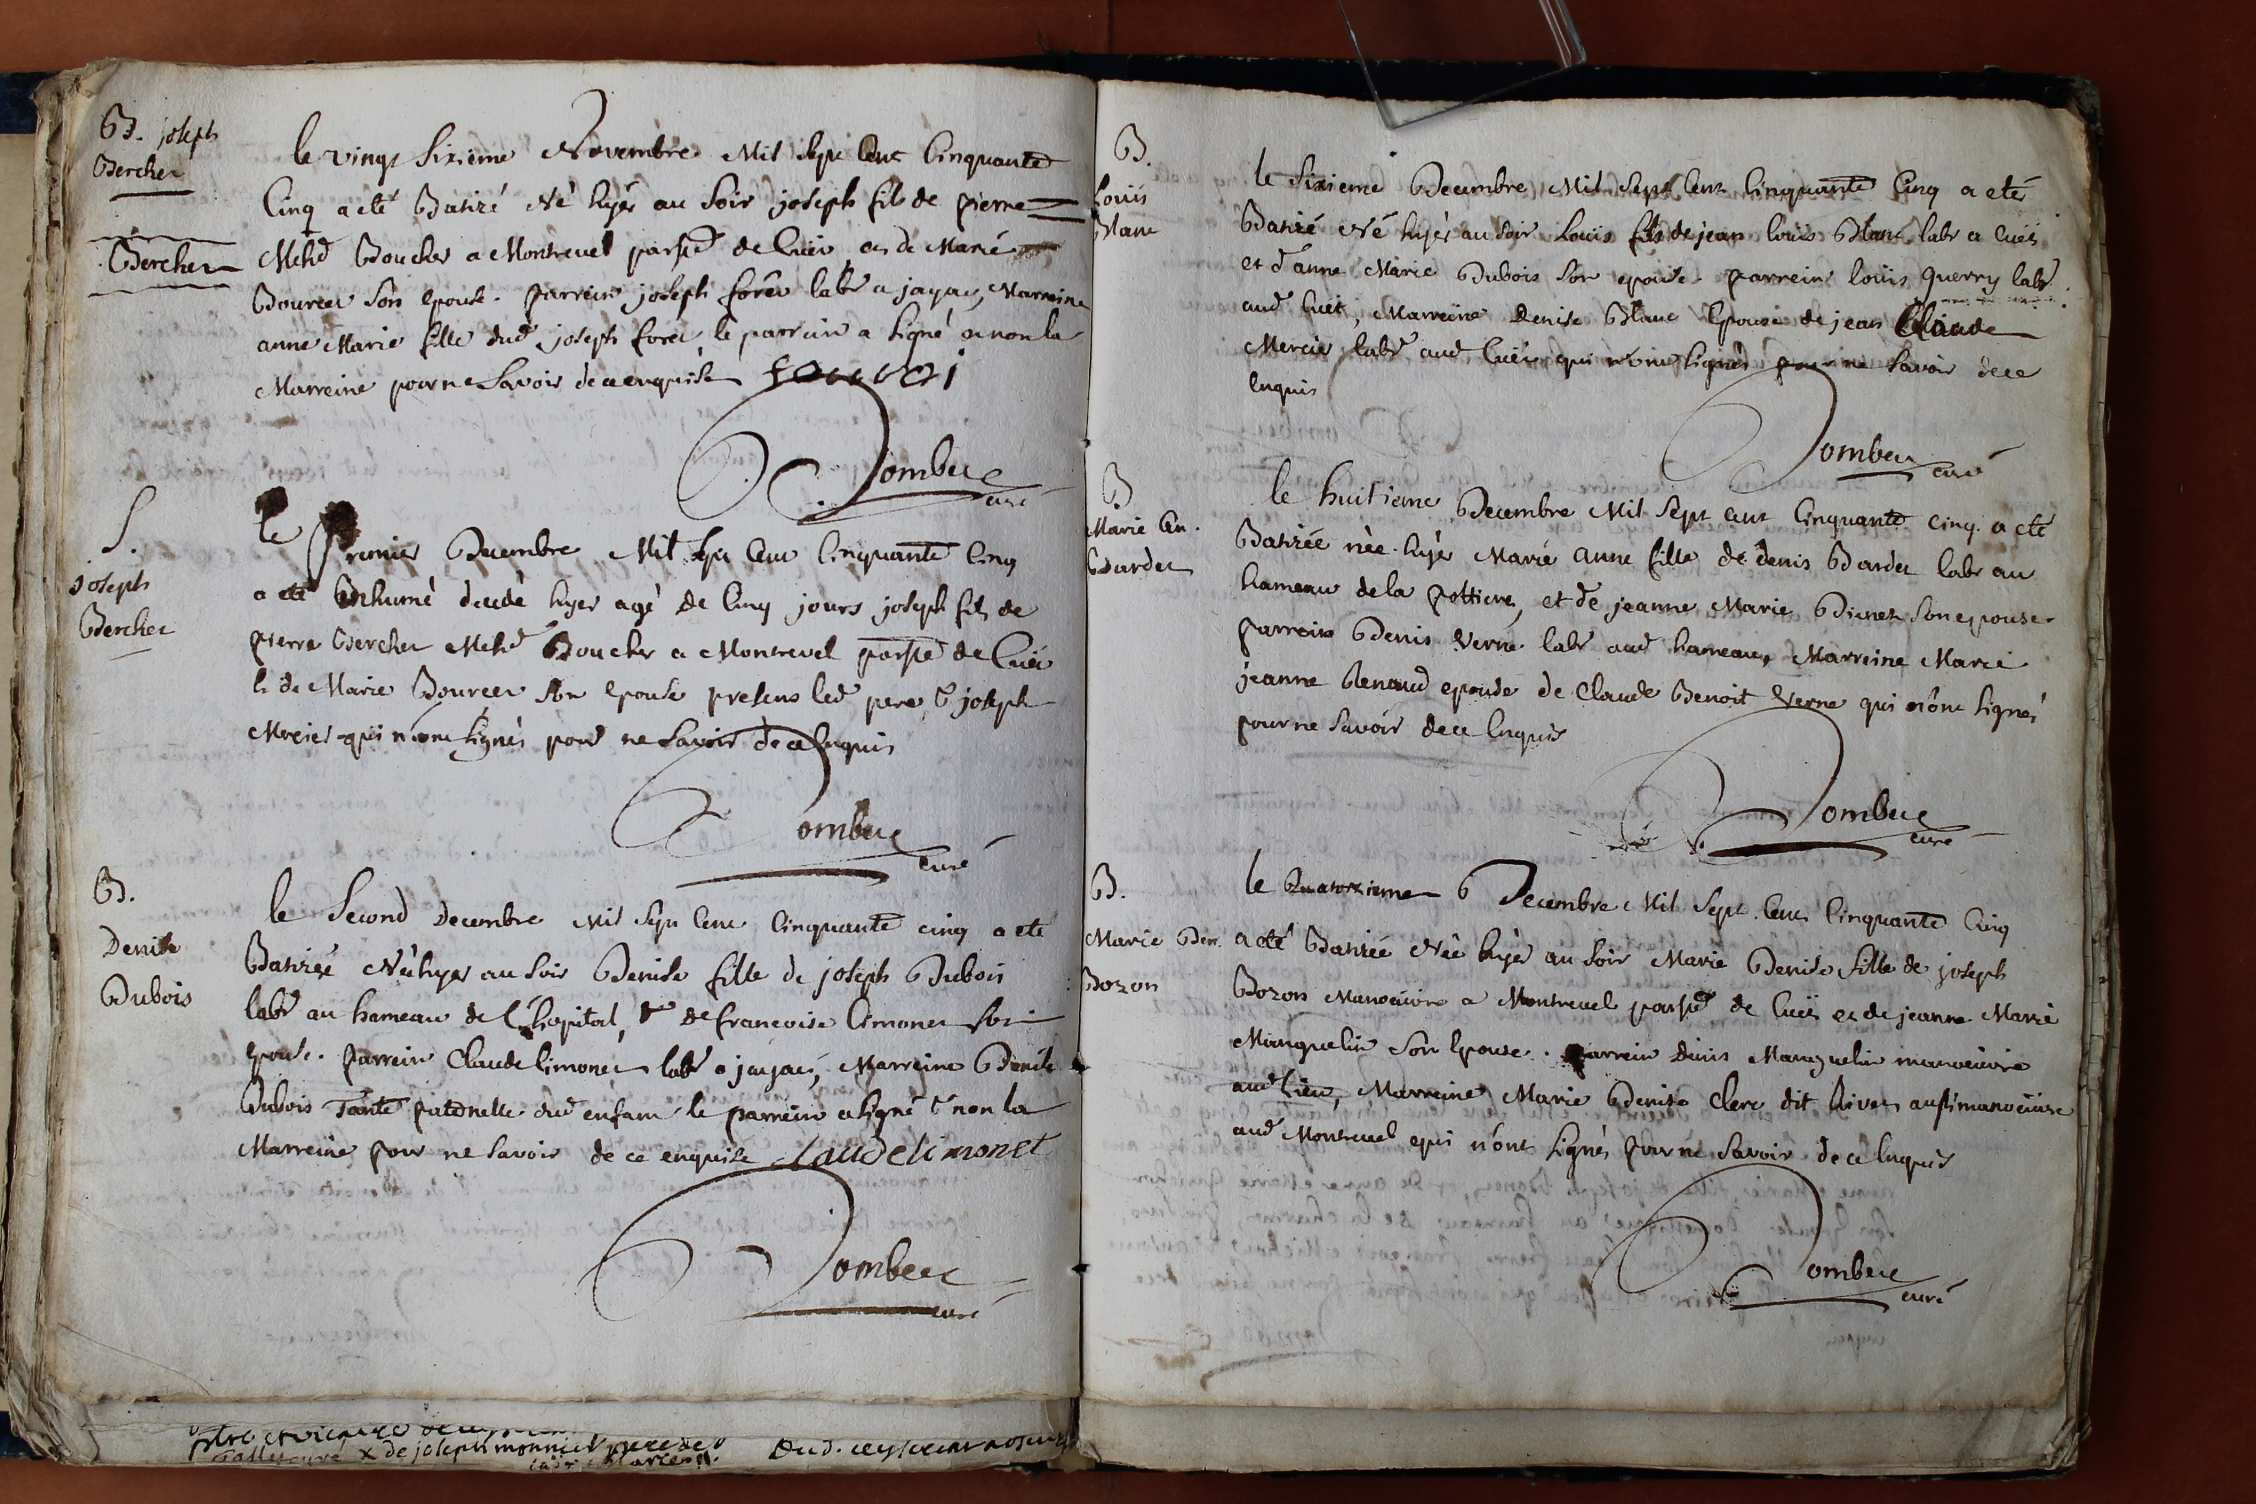 B. joseph
Bercher
le vingt Sixieme Novembre Mil Sept Cent Cinquante
Cinq a eté Batizé Né hyer au Soir joseph fils de pierre
Bercher
Mchd Boucher a Montrevel parsse de Cuët et de Marie
Bourcet Son epouse. parrein joseph foret labr a jayac, Marreine
anne Marie fille dud joseph foret, le parrein a Signé et non la
Marreine pour ne Savoir de ce enquise
Dombey
curé
S.
joseph
Bercher
le Premier Decembre Mil Sept Cent Cinquante Cinq
a eté Enhumé decedé hyer agé de Cinq jours joseph fils de
pierre Bercher Mchd Boucher a Montrevel parsse de Cuët
et de Marie Bourcet Son epouse presens led pere & joseph
Mercier qui n'ont Signés pour ne Savoir de ce Enquis
Dombey
curé
B.
Denise
Dubois
le Second decembre Mil Sept Cent Cinquante cinq a eté
Batizée Née hyer au Soir Denise fille de joseph Dubois
labr au hameau de L'hopital, & de francoise Limonet Son
epouse. parrein Claude limonet labr a jayac, Marreine Denise
Dubois Tante paternelle dud enfant le parrein a Signé & non la
Marreine pour ne Savoir de ce enquise Claude limonet
Dombey
curé
x de joseph monnier
B.
Louis
Blanc
le Sixieme Decembre Mil Sept Cent Cinquante Cinq a eté
Batizé Né hyer au Soir Louis fils de jean louis Blanc labr a Cuët
et d'anne Marie Dubois Son epouse parrein louis querry labr
aud Cuët, Marreine Denise Blanc Epouse de jean Claude
Mercier labr aud Cuët qui n'ont Signés pour ne Savoir de ce
Enquis
Dombey
curé
B
Marie An.
Bardet
le huitieme Decembre Mil Sept Cent Cinquante cinq a eté
Batizée née hyer Marie Anne fille de denis Bardet labr au
hameau de la pottiere, et de jeanne Marie Son epouse
parrein Denis Verne labr aud hameau, Marreine Marie
jeanne Renaud epouse de Claude Benoit Verne qui n'ont Signés
pour ne Savoir de ce Enquis
Dombey
curé
B.
Marie Den.
Bozon
le Quatorzieme Decembre Mil Sept Cent Cinquante Cinq
a eté Batizée Née hyer au Soir Marie Denise fille de joseph
Bozon Manoeuvre a Montrevel parsse de Cuët et de jeanne Marie
Manquelin Son Epouse. parrein denis Manquelin manoeuvre
aud lieu, Marreine Marie Denise Clerc dit hivers aussi manoeuvre
aud Montrevel qui n'ont Signés pour ne Savoir de ce Enquis
Dombey
curé